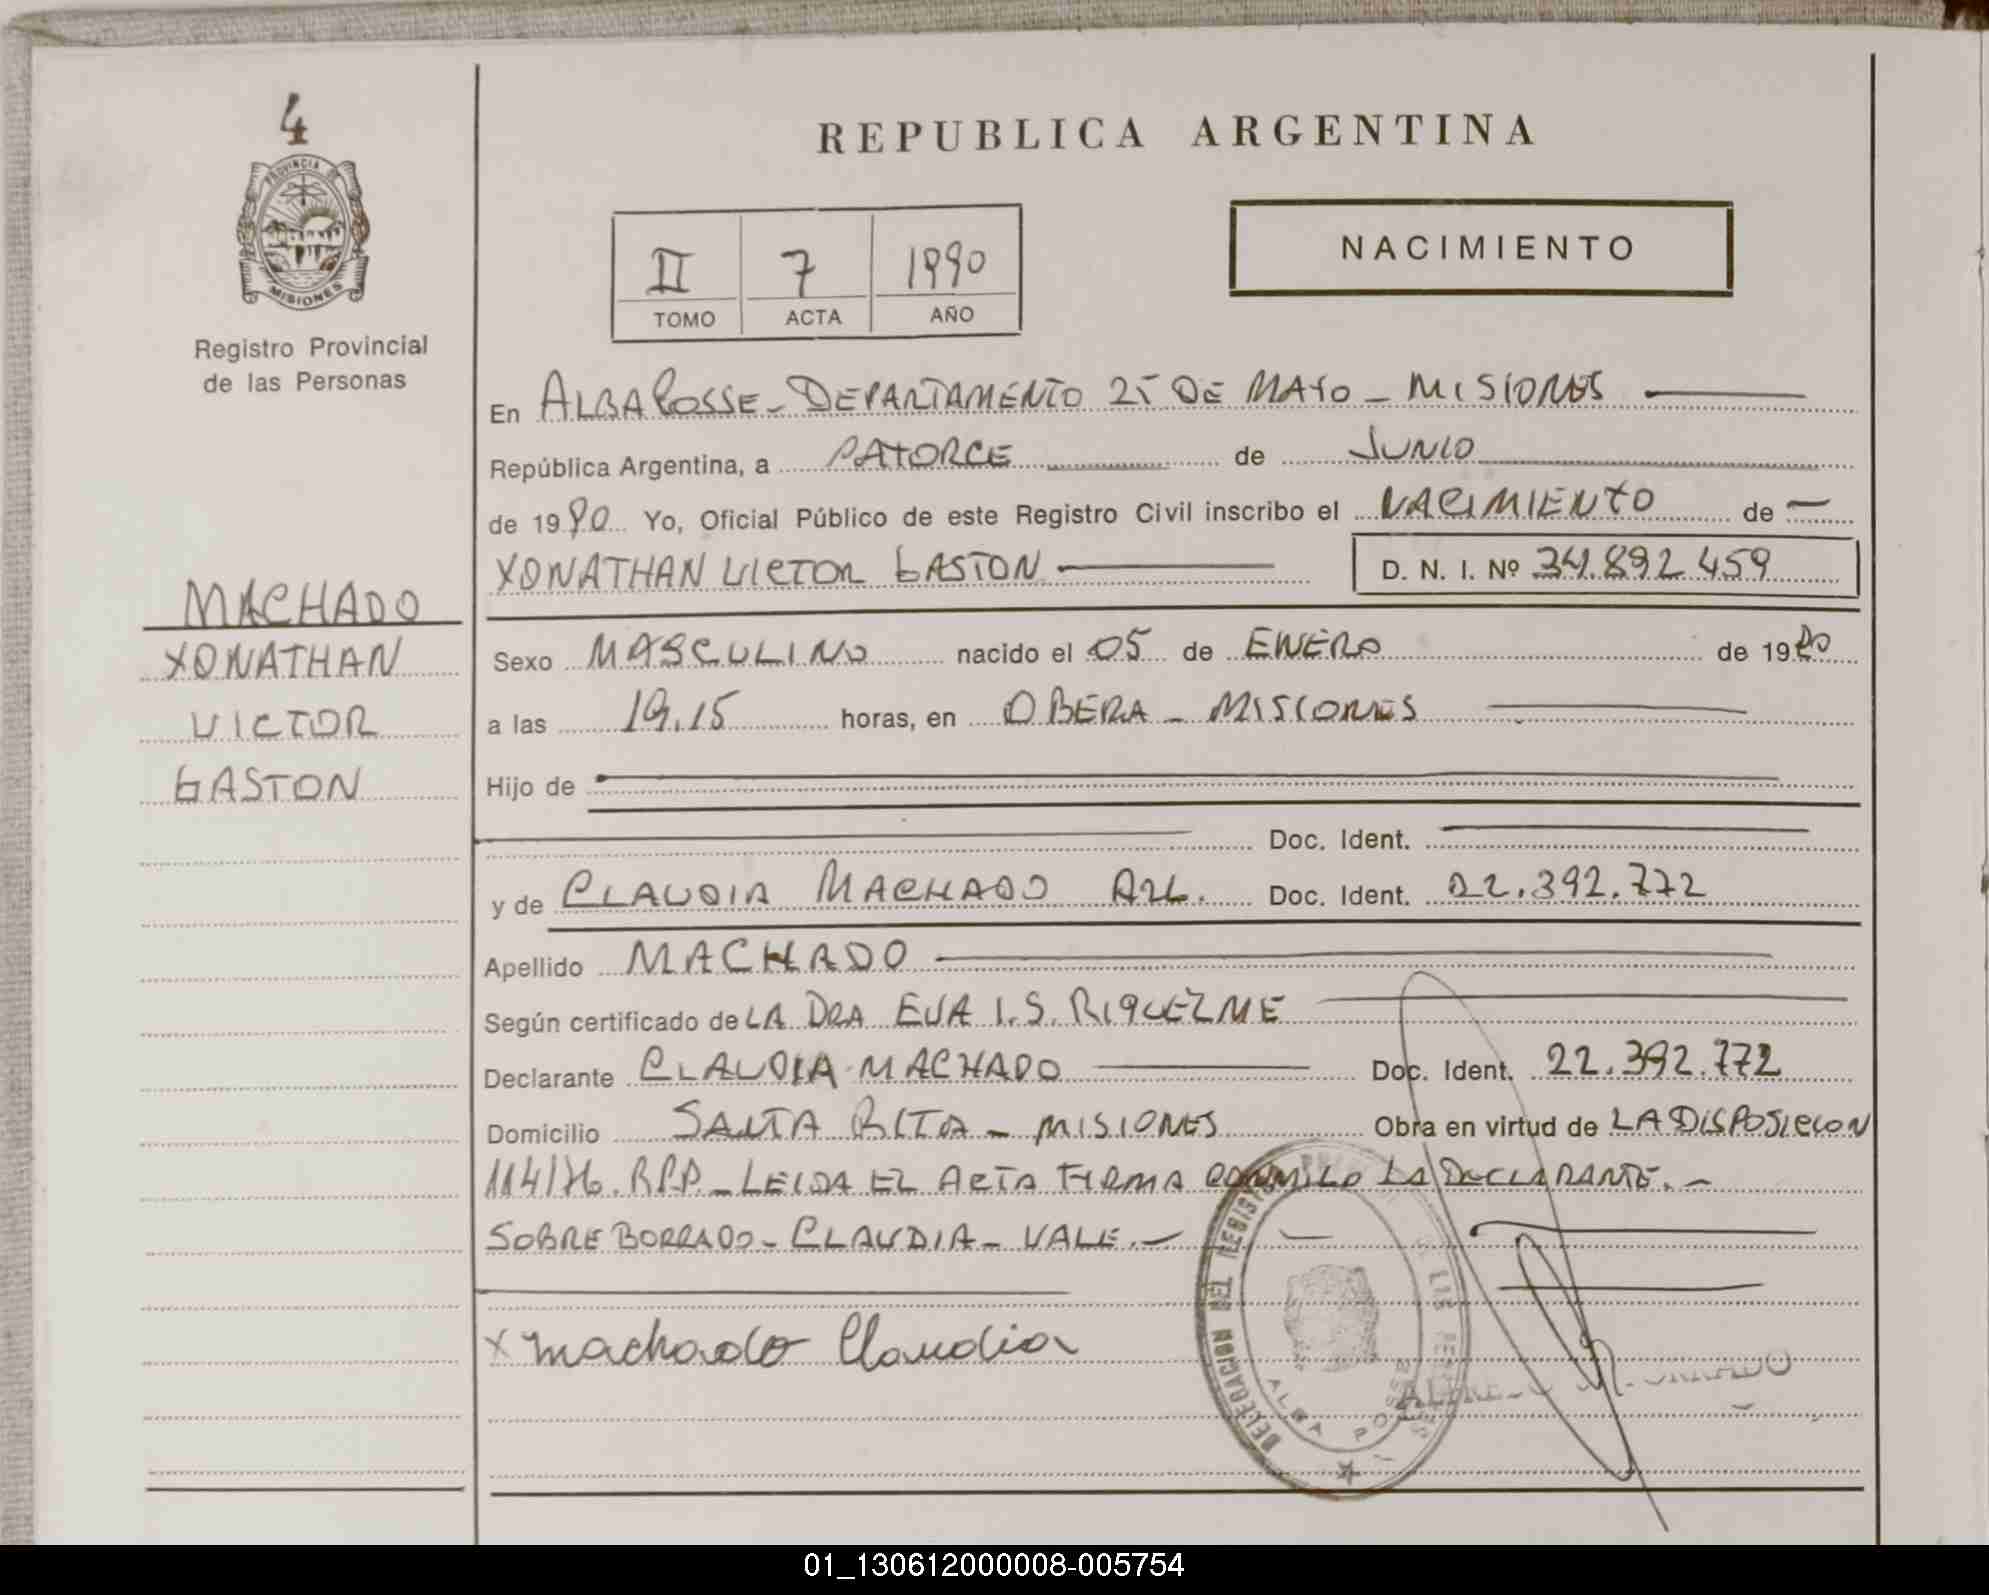 4
PROVINCIA DE
MISIONES
Registro Provincial
de las Personas
MACHADO
XONATHAN
VICTOR
GASTON
REPUBLICA ARGENTINA
II 7 1990
TOMO ACTA AÑO
NACIMIENTO
En ALBA POSSE - DEPARTAMENTO 25 DE MAYO - MISIONES
República Argentina, a CATORCE de JUNIO
de 1990 Yo, Oficial Público de este Registro Civil inscribo el NACIMIENTO de
XONATHAN VICTOR GASTON D. N. I. Nº 34.892.459
Sexo MASCULINO nacido el 05 de ENERO de 1990
a las 19.15 horas, en OBERA - MISIONES
Hijo de
Doc. Ident.
y de CLAUDIA MACHADO ARG. Doc. Ident. 22.392.772
Apellido MACHADO
Según certificado de LA DRA EVA I. S. RIQUELME
Declarante CLAUDIA MACHADO Doc. Ident. 22.392.772
Domicilio SANTA RITA - MISIONES Obra en virtud de LA DISPOSICION
114/76. RPP - LEIDA EL ACTA FIRMA CONMIGO LA DECLARANTE. -
SOBRE BORRADO - CLAUDIA - VALE. -
x Machado Claudia
DELEGACION DEL REGISTRO
ALBA POSSE
01_130612000008-005754